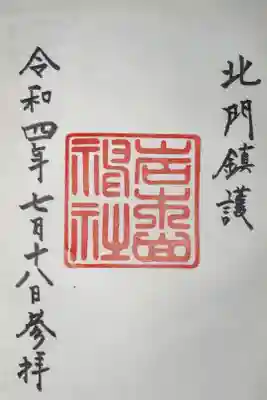 北門鎮護
岩木山
神社
令和四年七月十八日参拝